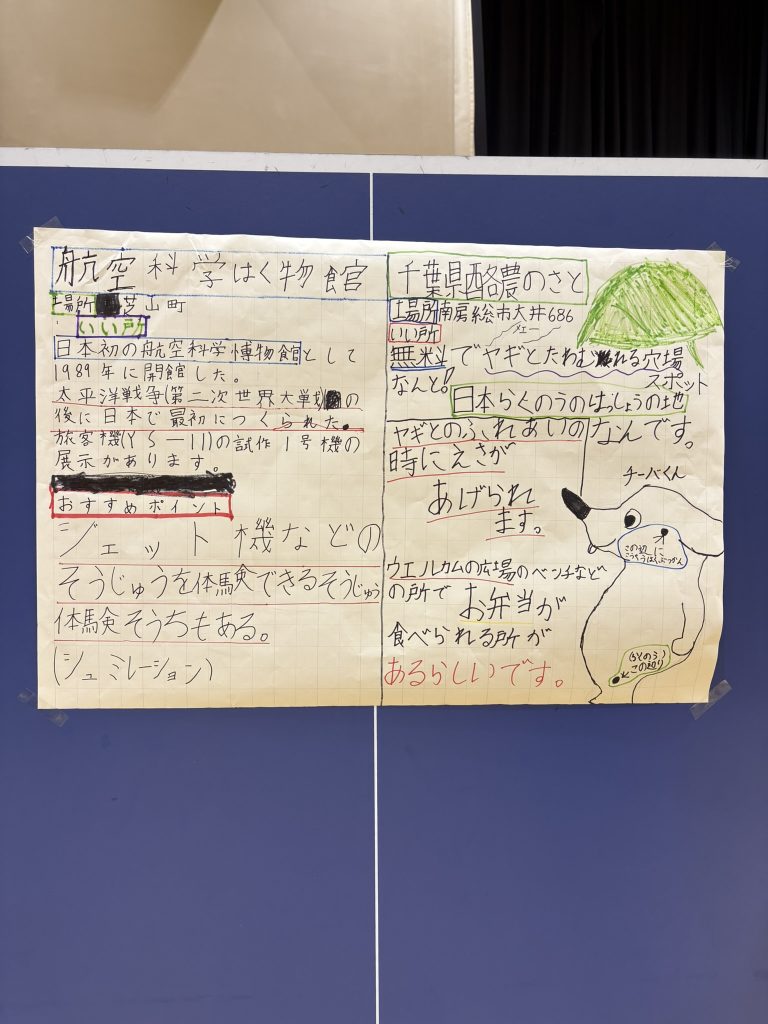 航空科学はく物館
場所 芝山町
いい所
日本初の航空科学博物館として
1989年に開館した。
太平洋戦争(第二次世界大戦)の
後に日本で最初につくられた。
旅客機(YS-11)の試作1号機の
展示があります。
おすすめポイント
ジェット機などの
そうじゅうを体験できるそうじゅう
体験そうちもある。
(シュミレーション)
千葉県酪農のさと
場所南房総市大井686
いい所
メェー
無料でヤギとたわむれる穴場
スポット
なんと!
日本らくのうのはっしょうの地
なんです。
ヤギとのふれあいの
時にえさが
あげられ
ます。
ウエルカムの広場のベンチなど
の所でお弁当が
食べられる所が
あるらしいです。
チーバくん
この辺に
こうくうはくぶつかん
(らくのう)
この辺り